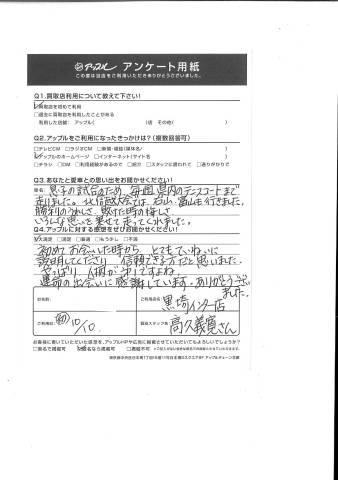 アップル アンケート用紙
この度は当店をご利用いただきありがとうございました。
Q1.買取店利用について教えて下さい!
買取店を初めて利用
□過去に買取店を利用したことがある
利用した店舗: アップル( )店 その他( )
Q2.アップルをご利用になったきっかけは?(複数回答可)
□テレビCM □ラジオCM □新聞・雑誌(媒体名/ )
アップルのホームページ □インターネット(サイト名 )
□チラシ □DM □利用経験があるので □紹介 □スタッフに誘われて □通りがかりで
Q3.あなたと愛車との思い出をお聞かせください!
車名: 息子の試合のため、毎週県内のテニスコートまで
走りました。北信越大会では、石川、富山も行きました。
勝利のうれしさ、敗けた時の悔しさ
いろんな思いを乗せて走ってくれました。
Q4.アップルに対する感想をぜひお聞かせください!
大満足 □満足 □普通 □もう少し □不満
初めてお会いした時から、とてもていねいに
説明してくださり、信頼できる方だと思いました。
やっぱり、人柄が一番ですよね。
運命の出会いに感謝しています。ありがとうござい
ました。
お名前:
ご利用店名: 黒埼インター店
ご利用日: 10/10.
買取スタッフ名: 高久義寛さん
お客様に書いていただいた感想を、アップルHPや広告に掲載させていただいてもよろしいでしょうか?
□実名で掲載可 仮名なら掲載可 □掲載不可